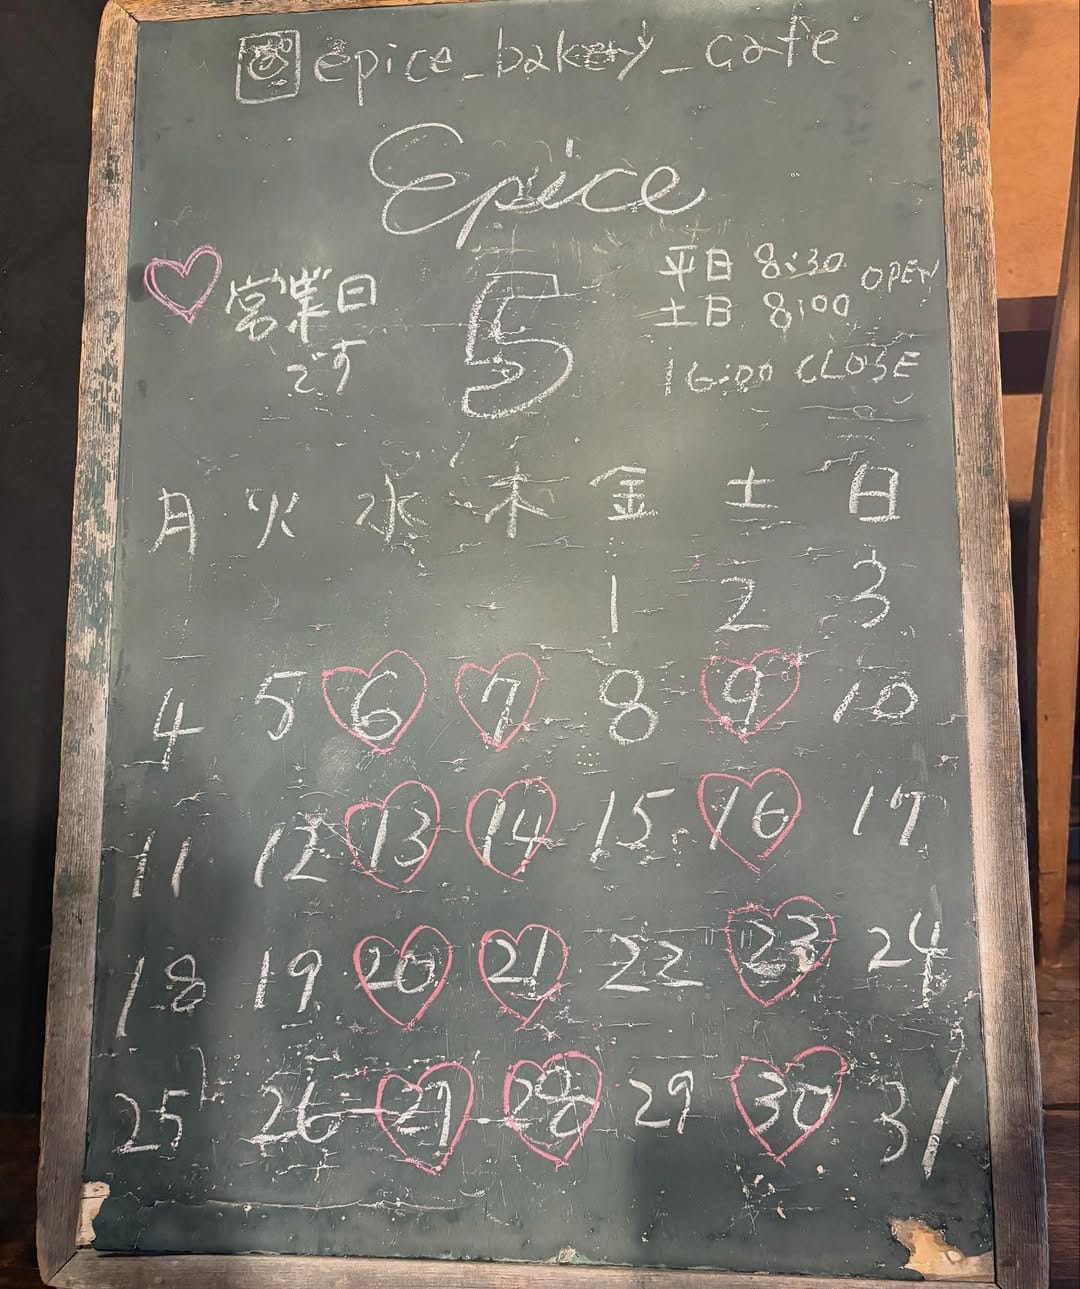 @epice_bakery_cafe
Epice
♡ 営業日
です
5
平日 8:30 OPEN
土日 8:00
16:00 CLOSE
月 火 水 木 金 土 日
1 2 3
4 5 6 7 8 9 10
11 12 13 14 15 16 17
18 19 20 21 22 23 24
25 26 27 28 29 30 31